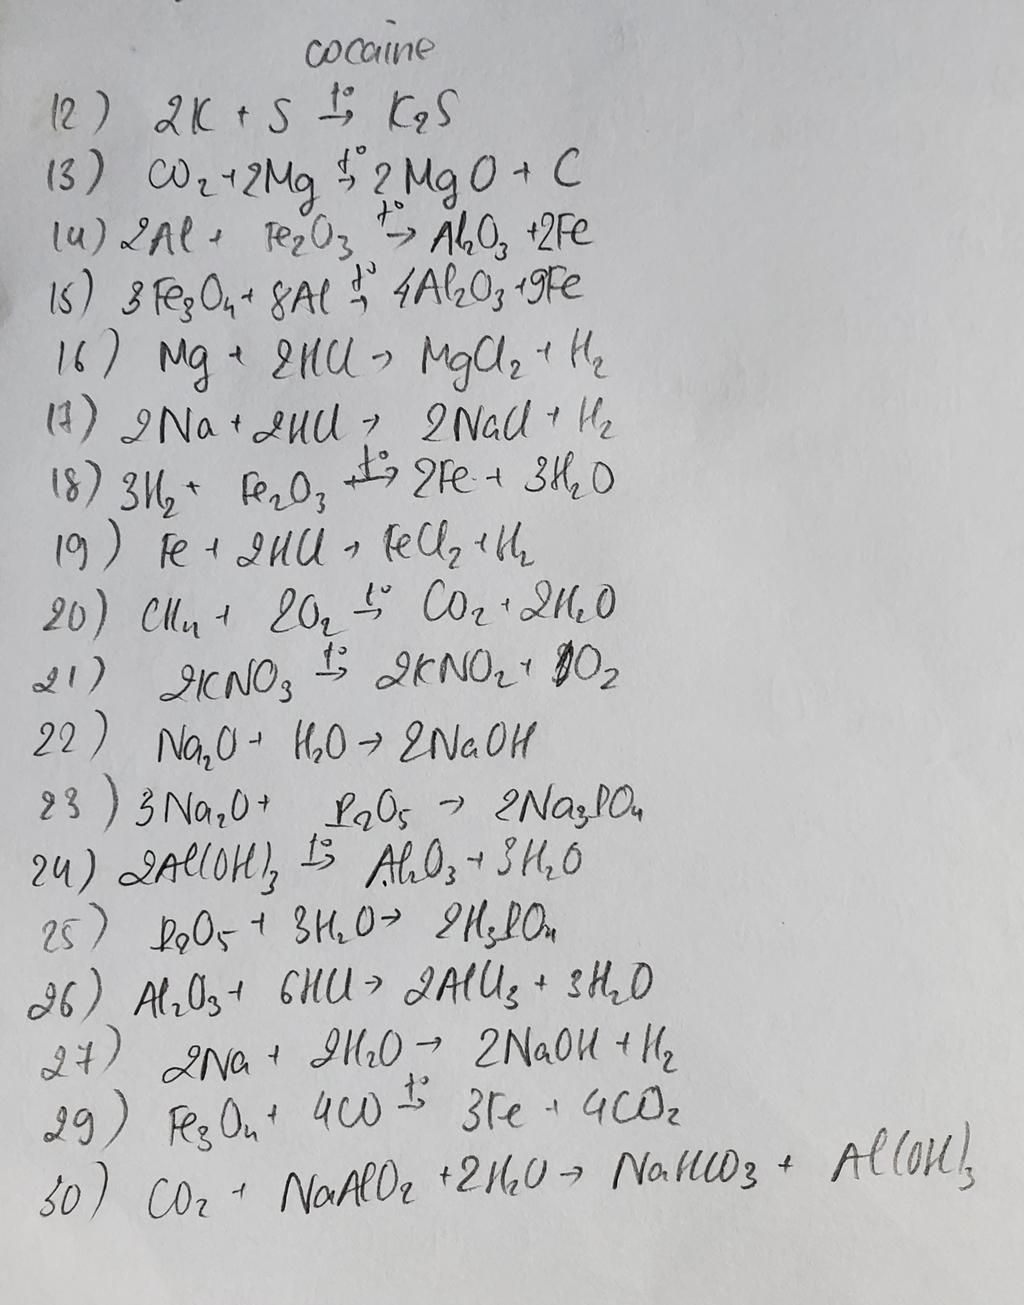 cocaine
12) 2K + S t°→ K₂S
13) CO₂ + 2Mg t°→ 2MgO + C
14) 2Al + Fe₂O₃ t°→ Al₂O₃ + 2Fe
15) 3Fe₃O₄ + 8Al t°→ 4Al₂O₃ + 9Fe
16) Mg + 2HCl → MgCl₂ + H₂
17) 2Na + 2HCl → 2NaCl + H₂
18) 3H₂ + Fe₂O₃ t°→ 2Fe + 3H₂O
19) Fe + 2HCl → FeCl₂ + H₂
20) CH₄ + 2O₂ t°→ CO₂ + 2H₂O
21) 2KNO₃ t°→ 2KNO₂ + O₂
22) Na₂O + H₂O → 2NaOH
23) 3Na₂O + P₂O₅ → 2Na₃PO₄
24) 2Al(OH)₃ t°→ Al₂O₃ + 3H₂O
25) P₂O₅ + 3H₂O → 2H₃PO₄
26) Al₂O₃ + 6HCl → 2AlCl₃ + 3H₂O
27) 2Na + 2H₂O → 2NaOH + H₂
29) Fe₃O₄ + 4CO t°→ 3Fe + 4CO₂
30) CO₂ + NaAlO₂ + 2H₂O → NaHCO₃ + Al(OH)₃